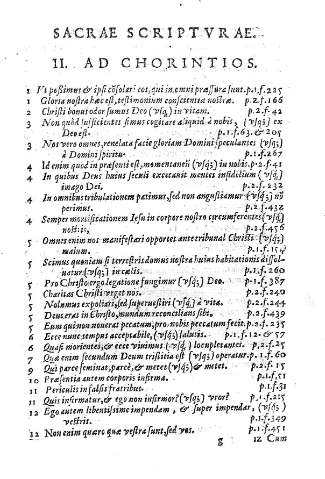 SACRAE SCRIPTVRAE.
II. AD CHORINTIOS.
1 Vt possimus & ipsi cōsolari eos, qui in omni præssura sunt. p.1.f.225
1 Gloria nostra hæc est, testimonium conscientiæ nostræ. p.2.f.166
2 Christi bonus odor sumus Deo (vsq;) in vitam. p.2.f.42
3 Non quòd sufficientes simus cogitare aliquid à nobis, (vsq;) ex
Deo est. p.1.f.63. & 205
3 Nos vero omnes, reuelata facie gloriam Domini speculantes (vsq;)
à Domini spiritu. p.1.f.267
4 Id enim quod in præsenti est, momentaneū (vsq;) in nobis. p.2.f.41
4 In quibus Deus huius seculi excæcauit mentes infidelium (vsq;)
imago Dei. p.2.f.232
4 In omnibus tribulationem patimur, sed non angustiamur (vsq;) nō
perimus. p.2.f.432
4 Semper mortificationem Iesu in corpore nostro circumferentes (vsq;)
nostris, p.2.f.456
5 Omnes enim nos manifestari opportet ante tribunal Christi (vsq;)
malum p.1.f.
5 Scimus quoniam si terrestris domus nostra huius habitationis dissol-
uatur (vsq;) in cælis. p.1.f.260
5 Pro Christo ergo legatione fungimur (vsq;) Deo. p.1.f.387
5 Charitas Christi vrget nos. p.2.f.240
5 Nolumus expoliari, sed superuestiri (vsq;) à vita. p.2.f.244
5 Deus erat in Christo, mundum reconcilians sibi. p.2.f.439
5 Eum qui non nouerat peccatum, pro nobis peccatum fecit. p.2.f.235
6 Ecce nunc tempus acceptabile, (vsq;) salutis. p.1.f.12 & 57
6 Quasi morientes, & ecce viuimus (vsq;) locupletantes. p.2.f.25
7 Quæ enim secundum Deum tristitia est (vsq;) operatur. p.1.f.60
9 Qui parcè seminat, parcè, & metet (vsq;) & metet. p.2.f.15
10 Præsentia autem corporis infirma. p.1.f.51
11 Periculis in falsis fratribus. p.1.f.31
11 Quis infirmatur, & ego non infirmor? (vsq;) vror? p.1.f.215
12 Ego autem libentissime impendam, & super impendar, (vsq;)
vestris. p.1.f.349
12 Non enim quæro quæ vestra sunt, sed vos. p.1.f.431
g 12 Cum